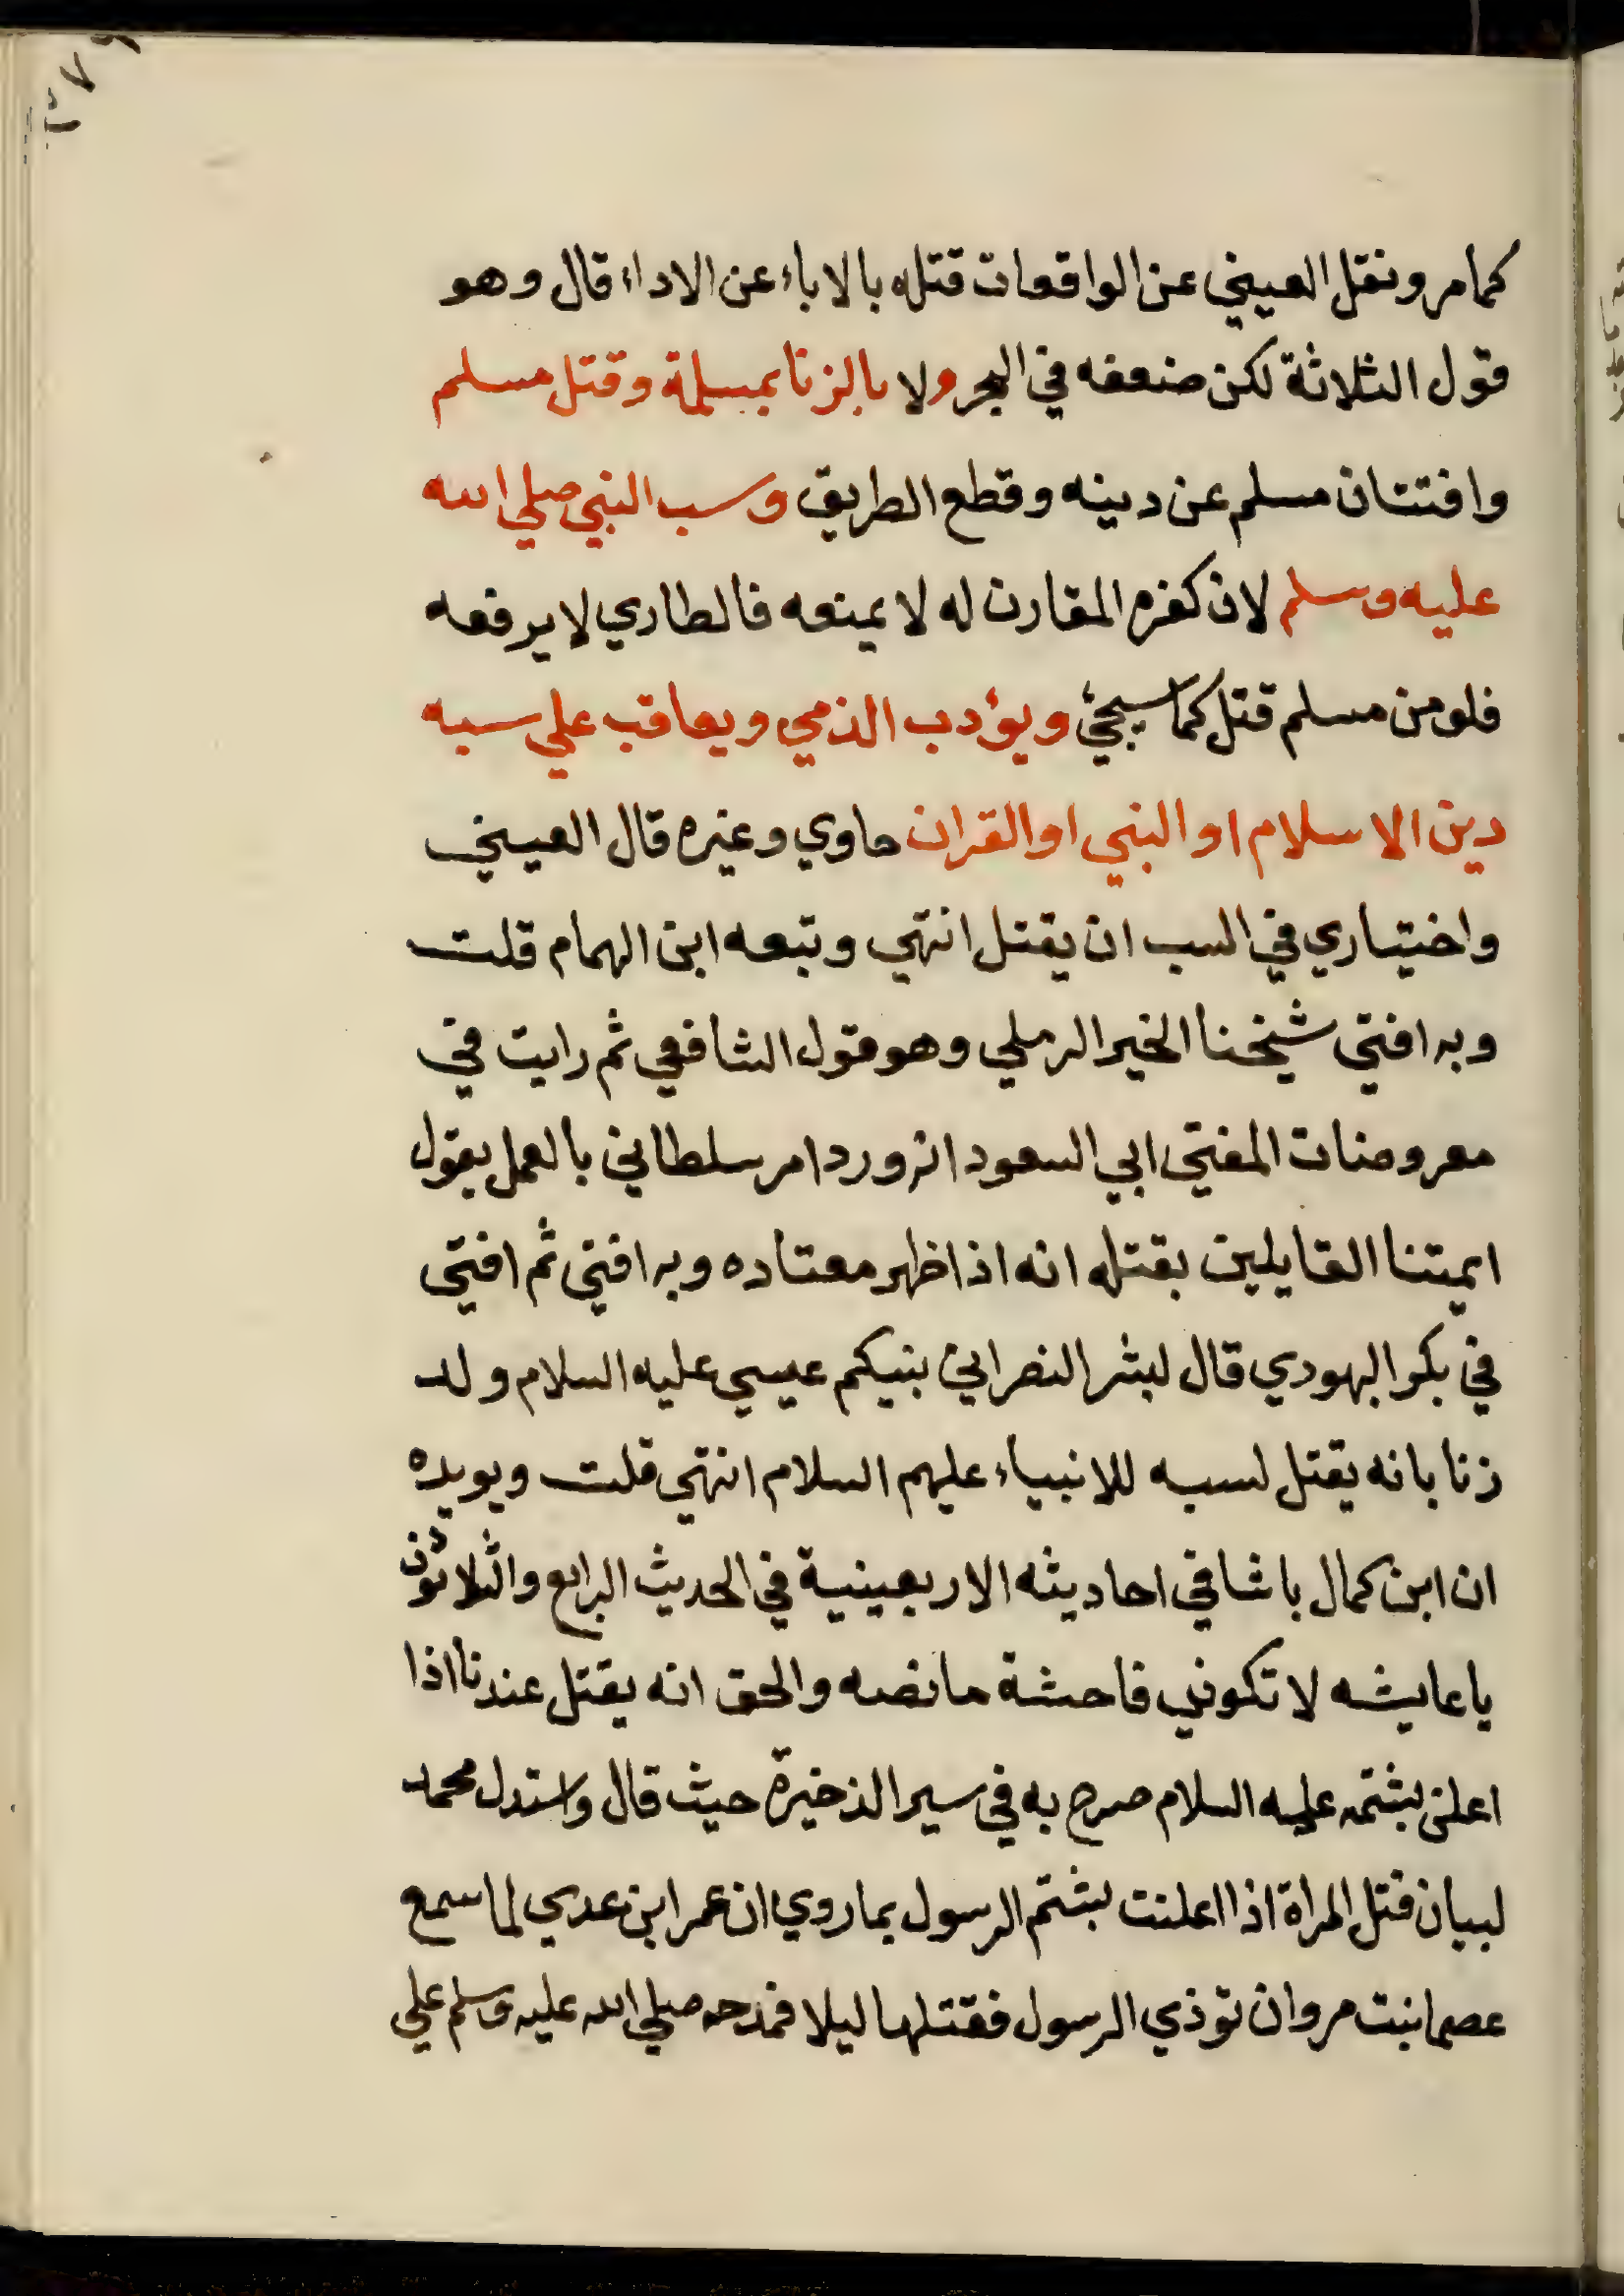 كمامر ونقل العيني عن الواقعات قتله بالاباء عن الاداء قال وهو
قول الثلاثة لكن ضعفه في البحر ولا بالزنا بمسلمة وقتل مسلم
وافتتان مسلم عن دينه وقطع الطريق وسب النبي صلي الله
عليه وسلم لان كفره المقارن له لا يمنعه فالطاري لا يرفعه
فلو من مسلم قتل كما سيجئ ويؤدب الذمي ويعاقب علي سبه
دين الاسلام او النبي او القران حاوي وغيره قال العيني
واختياري في السب ان يقتل انتهي وتبعه ابن الهمام قلت
وبه افتي شيخنا الخير الرملي وهو قول الشافعي ثم رايت في
معروضات المفتي ابي السعود انه ورد امر سلطاني بالعمل بقول
ايمتنا القايلين بقتله انه اذا ظهر معتاده وبه افتي ثم افتي
في بكر اليهودي قال لبشر النصراني نبيكم عيسي عليه السلام ولد
زنا بانه يقتل لسبه للانبياء عليهم السلام انتهي قلت ويويده
ان ابن كمال باشا في احاديثه الاربعينية في الحديث الرابع والثلاثون
يا عايشه لا تكوني فاحشة ما نصه والحق انه يقتل عندنا اذا
اعلن بشتمه عليه السلام صرح به في سير الذخيرة حيث قال واستدل محمد
لبيان قتل المراة اذا اعلنت بشتم الرسول بما روي ان عمر ابن عدي لما سمع
عصما بنت مروان توذي الرسول فقتلها ليلا فمدحه صلي الله عليه وسلم علي